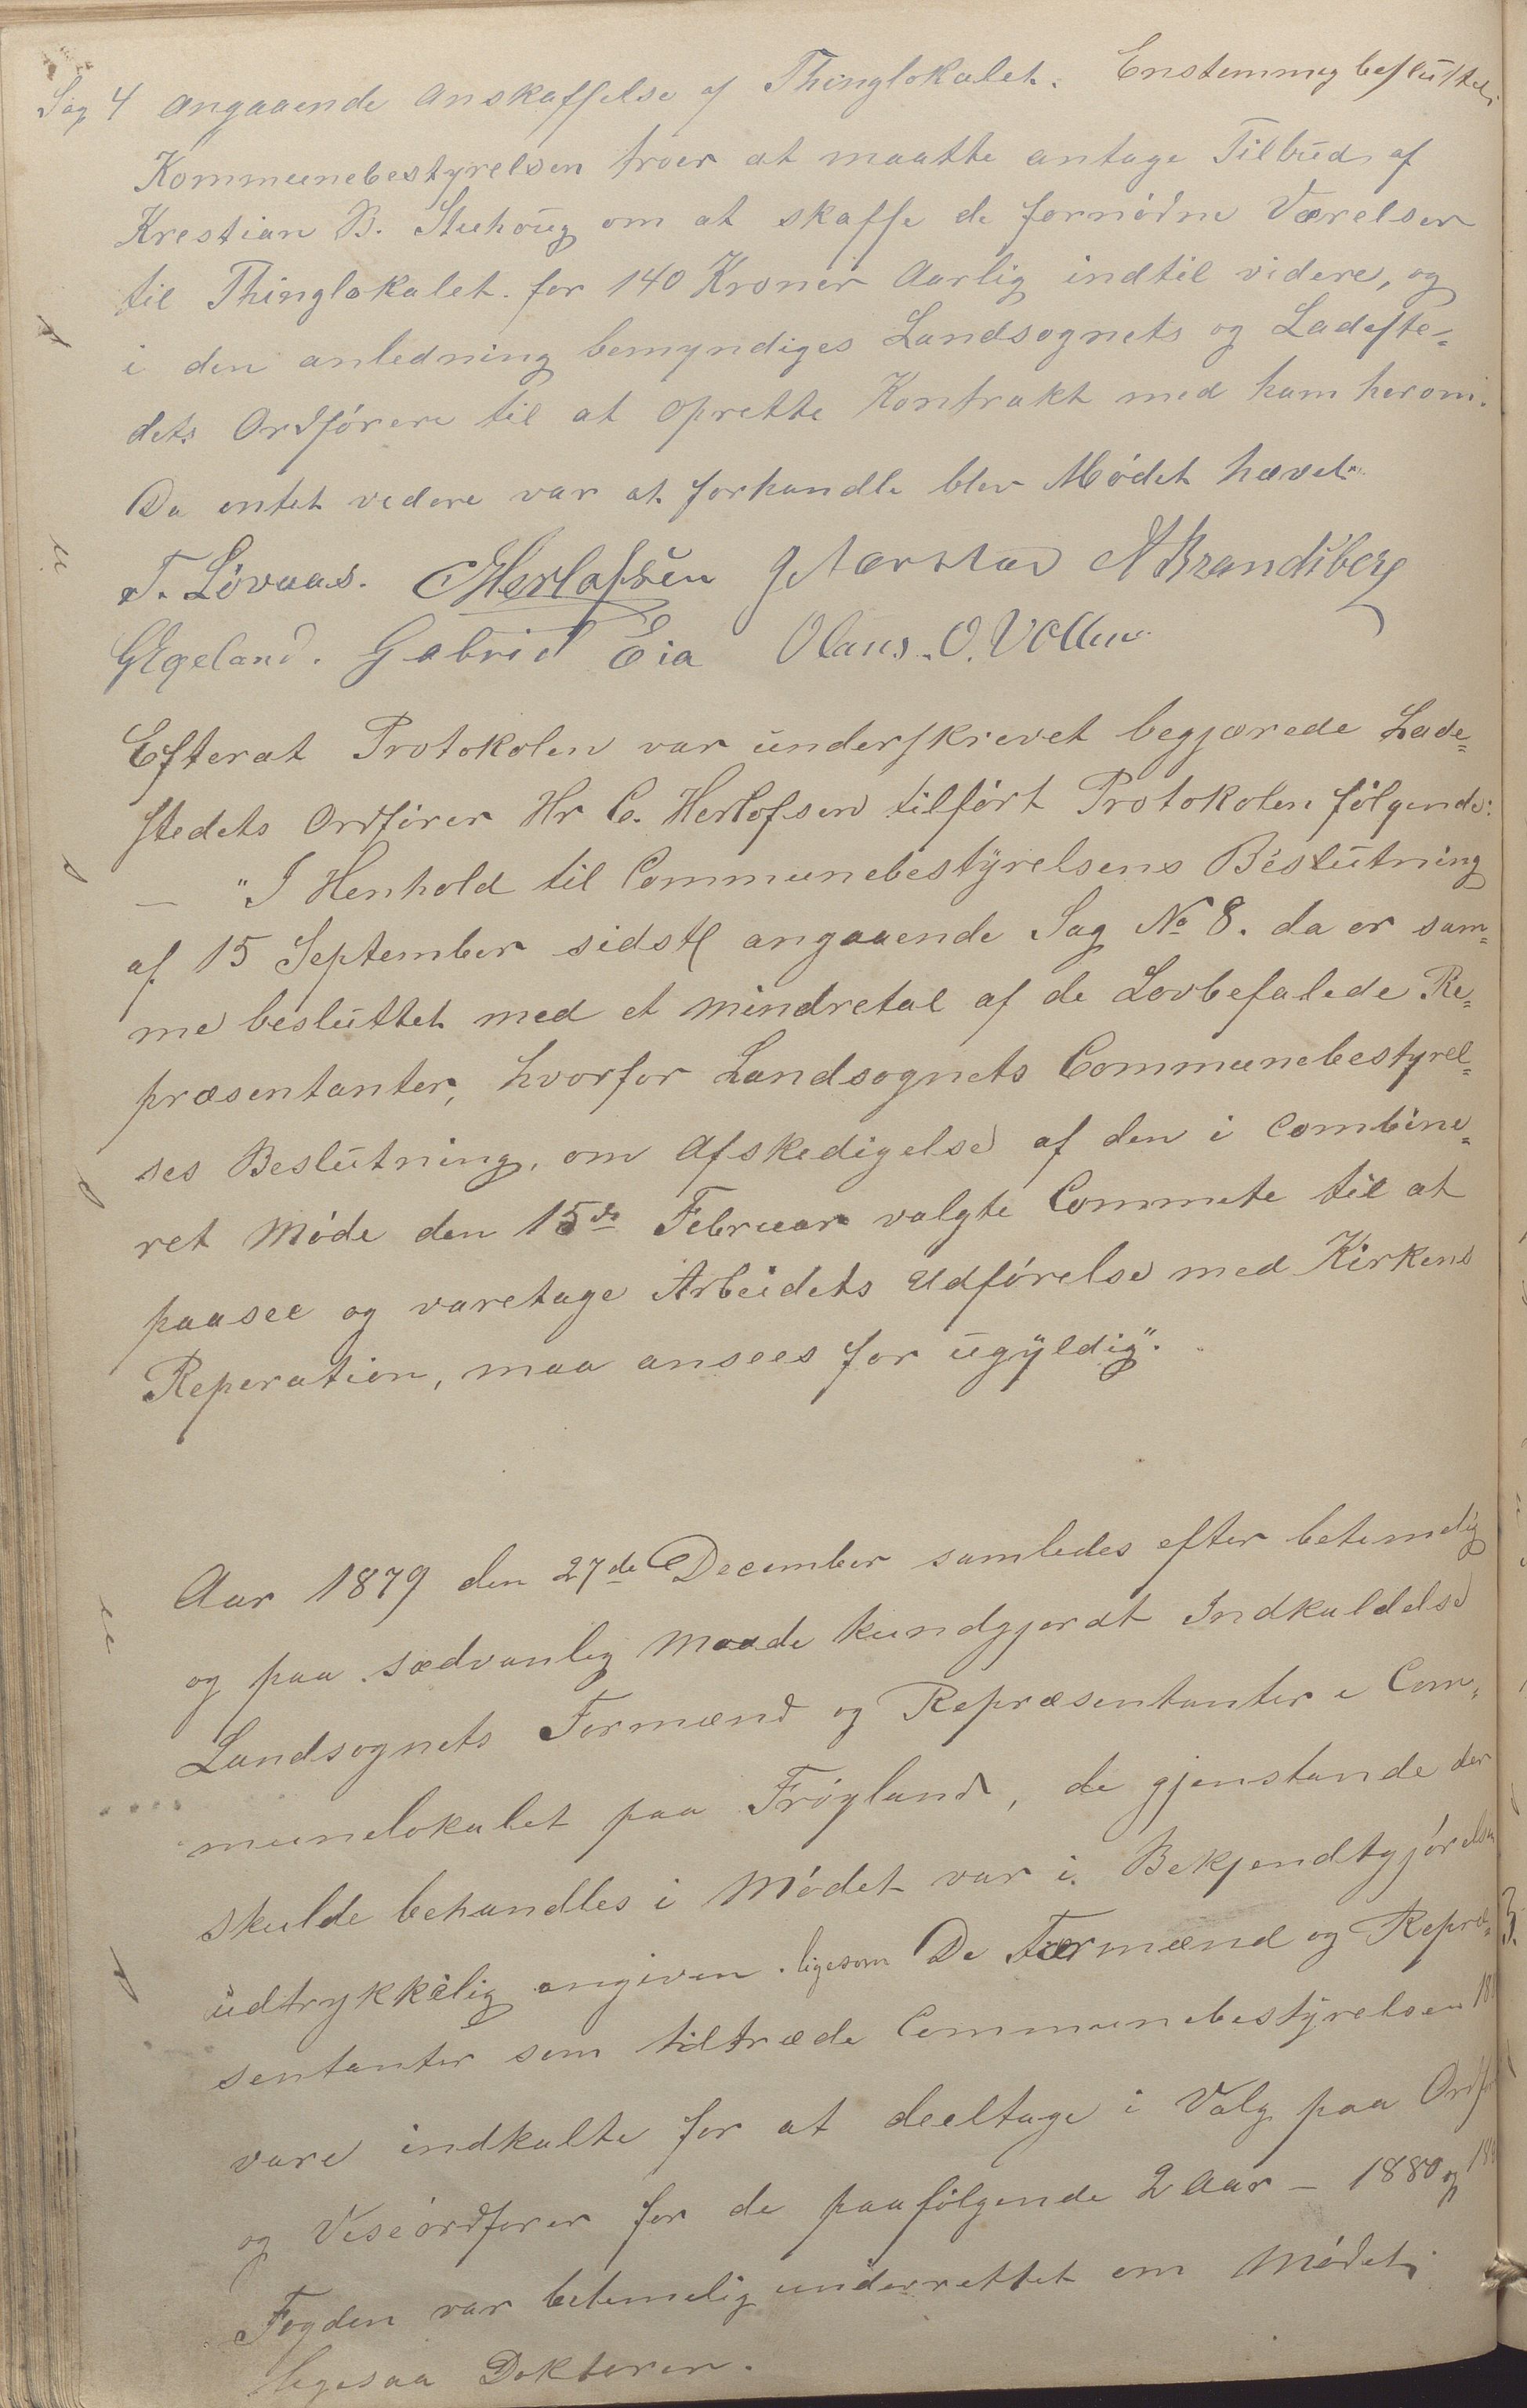 Sag 4 angaaende Anskaffelse af Thinglokalet. Enstemmig besluttet,
Kommunebestyrelsen troer at maatte antage Tilbud af
Krestian B. Stuhoug om at skaffe de fornødne Værelser
til Thinglokalet for 140 Kroner Aarlig indtil videre, og
i den anledning bemyndiges Landsognets og Ladeste-
dets Ordførere til at oprette Kontrakt med ham herom.
Da entet vedere var at forhandle blev Mødet hævet.
T. Lövaas. C Herlofsen J. Aarstad A Brandsberg
G Egeland. Gabriel Eia Olaus. O. Vollen
Efterat Protokolen var underskrevet begjærede Lade-
stedets Ordfører Hr C. Herlofsen tilført Protokolen følgende:
— "I Henhold til Communebestyrelsens Beslutning
af 15 September sidstl angaaende Sag No 8. da er sam-
me besluttet med et mindretal af de Lovbefalede Re-
præsentanter, hvorfor Landsognets Communebestyrel-
ses Beslutning, om Afskedigelse af den i Combine-
ret Møde den 15de Februar valgte Commete til at
paasee og varetage Arbeidets Udførelse med Kirkens
Reperation, maa ansees for ugyldig".
Aar 1879 den 27de December samledes efter betimelig
og paa sædvanlig Maade kundgjordt Indkaldelse
Landsognets Formænd og Repræsentanter i Com-
munelokalet paa Frøyland, de gjenstande der
skulde behandles i Mødet var i Bekjendtgjørelsen
udtrykkelig angiven. ligesom De Formænd og Repræ-
sentanter som tiltræde Communebestyrelsen 18
vare indkalte for at deeltage i Valg paa Ordfø
og Viseordfører for de paafølgende 2 Aar — 1880 og 18
Fogden var betimelig underrettet om Mødet,
ligesaa Doktoren.